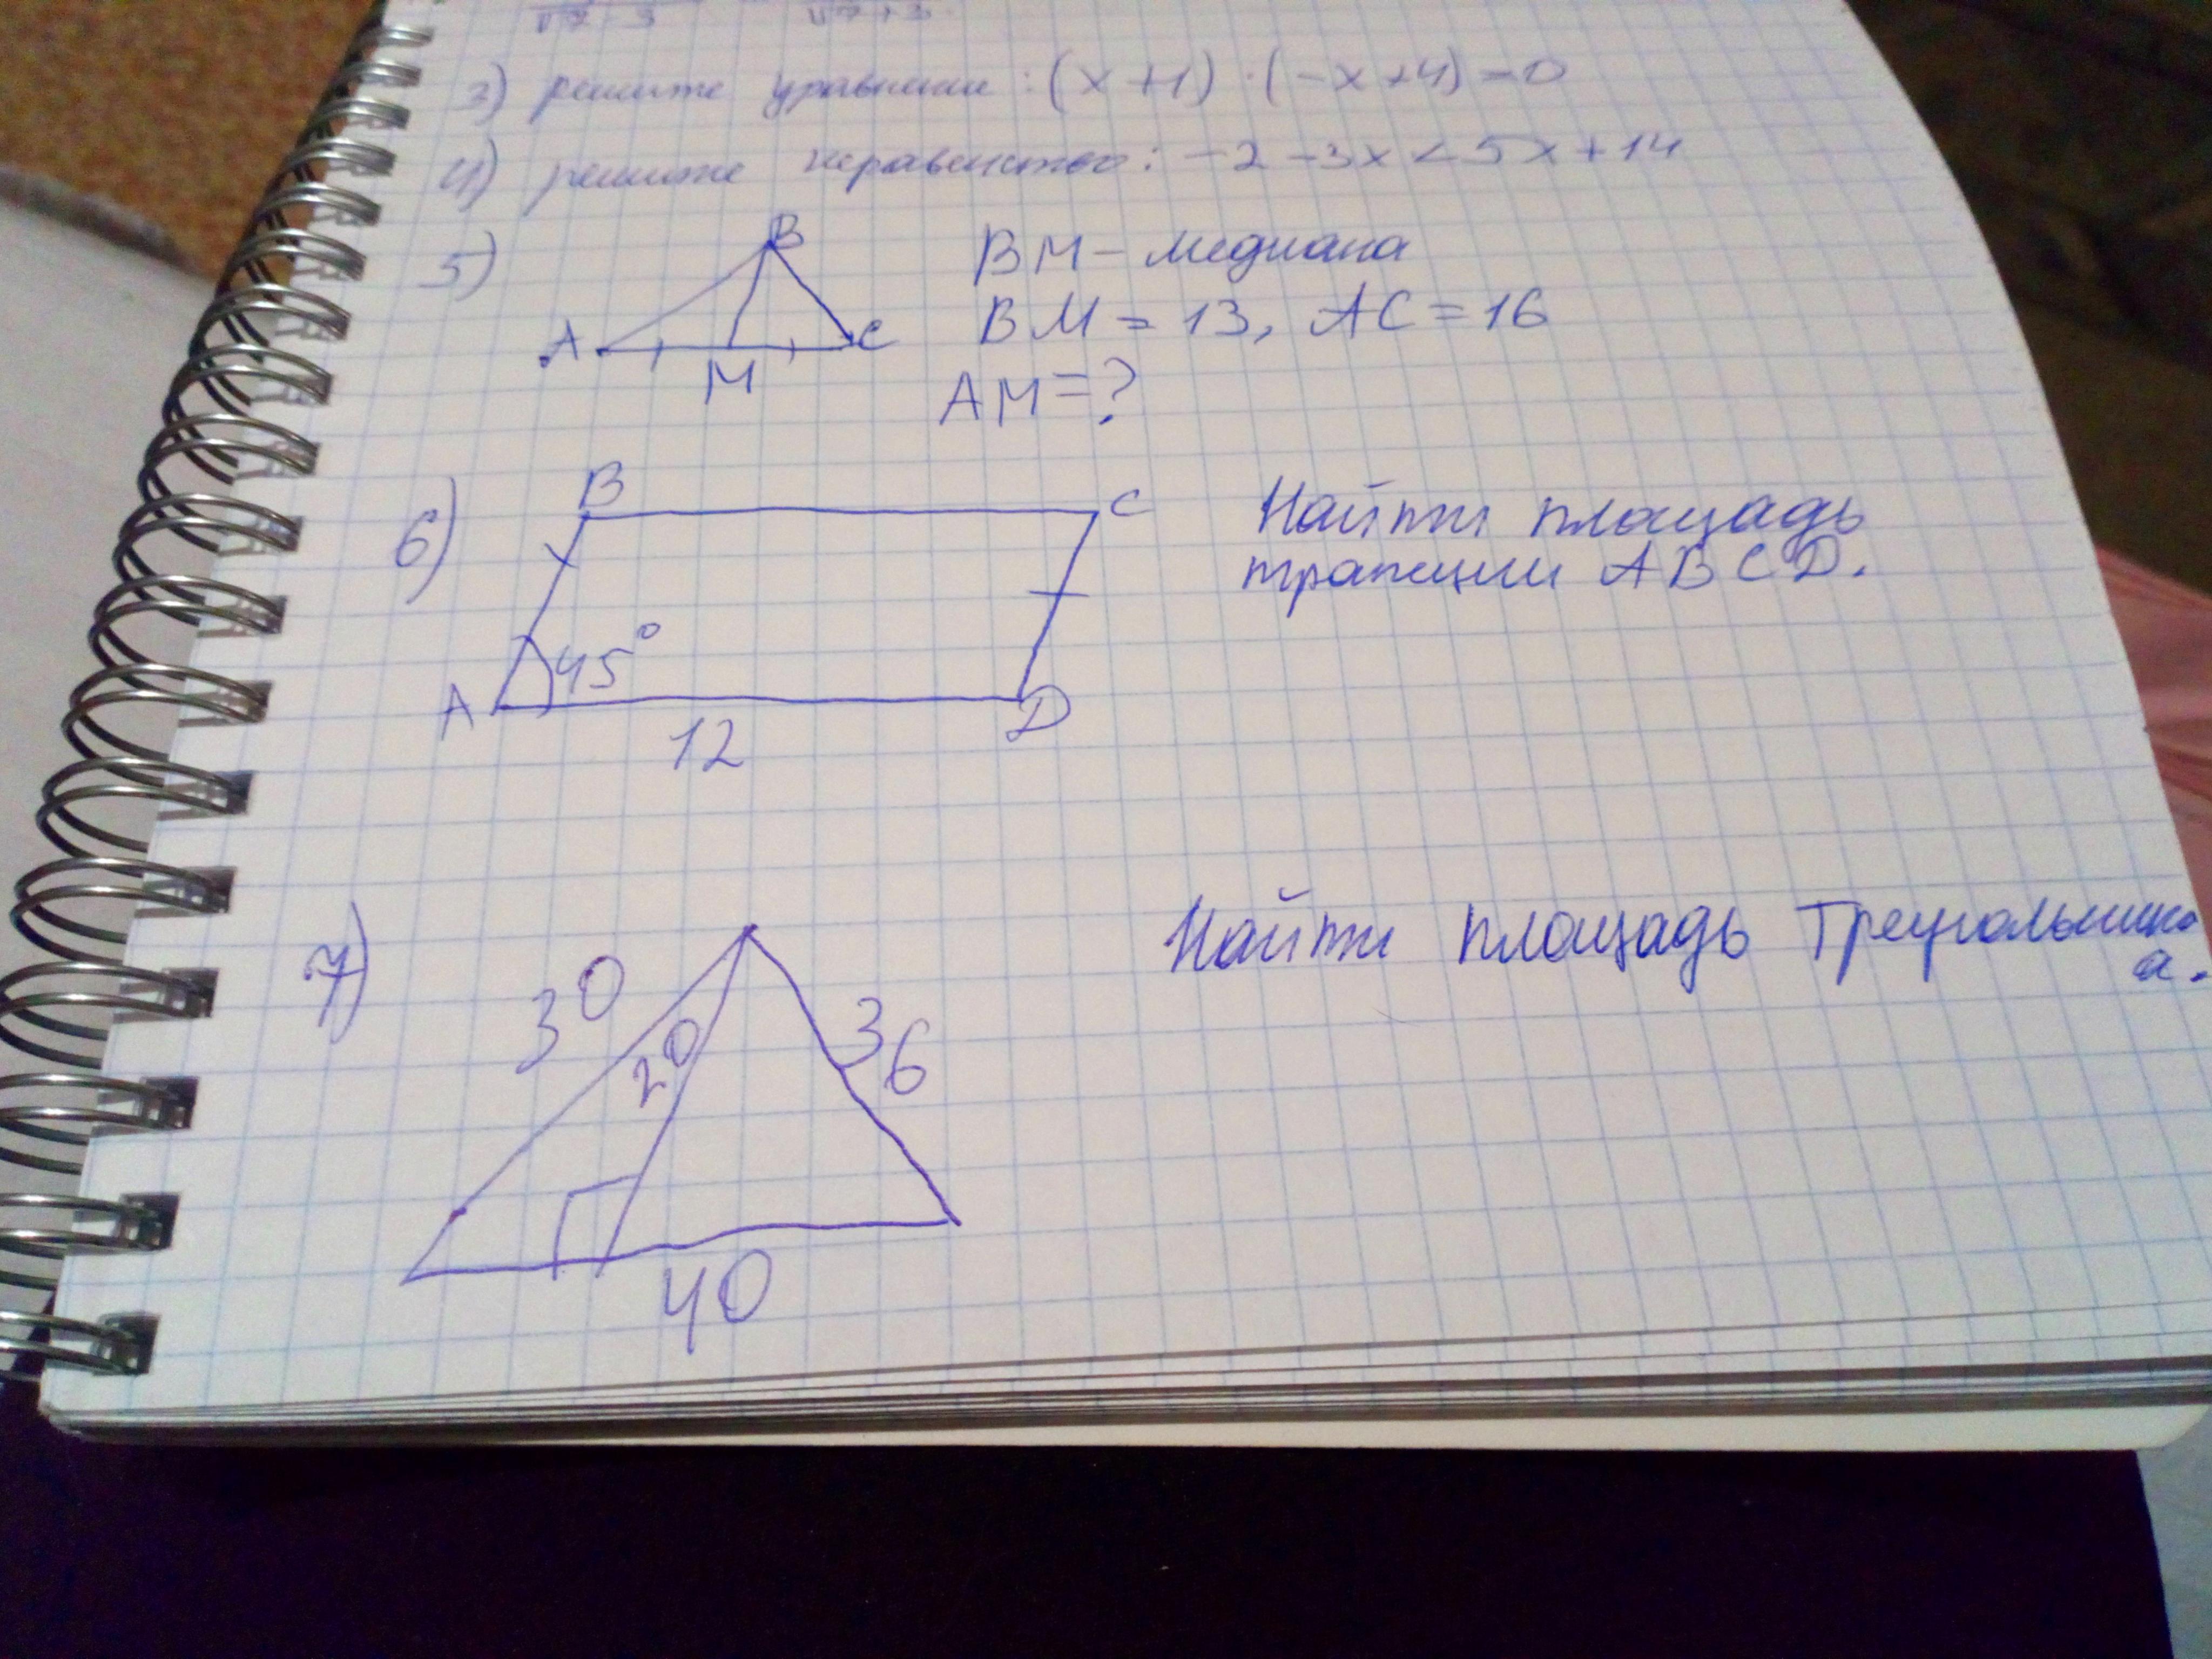 3) решите уравнение : (x+1) · (-x+4) = 0
4) решите неравенство: -2 -3x < 5x+14
5) B BM - медиана
A M C BM = 13, AC = 16
AM = ?
6) B C Найти площадь
трапеции ABCD.
45°
A D
12
7) Найти площадь Треугольника.
30 20 36
40